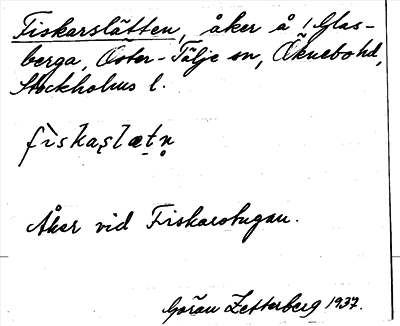 Fiskarslätten, åker å Glas-
berga, Öster-Tälje sn, Öknebo hd,
Stockholms l.
fìskaṣlætn̥
Åker vid Fiskarstugan.
Göran Zetterberg 1937.